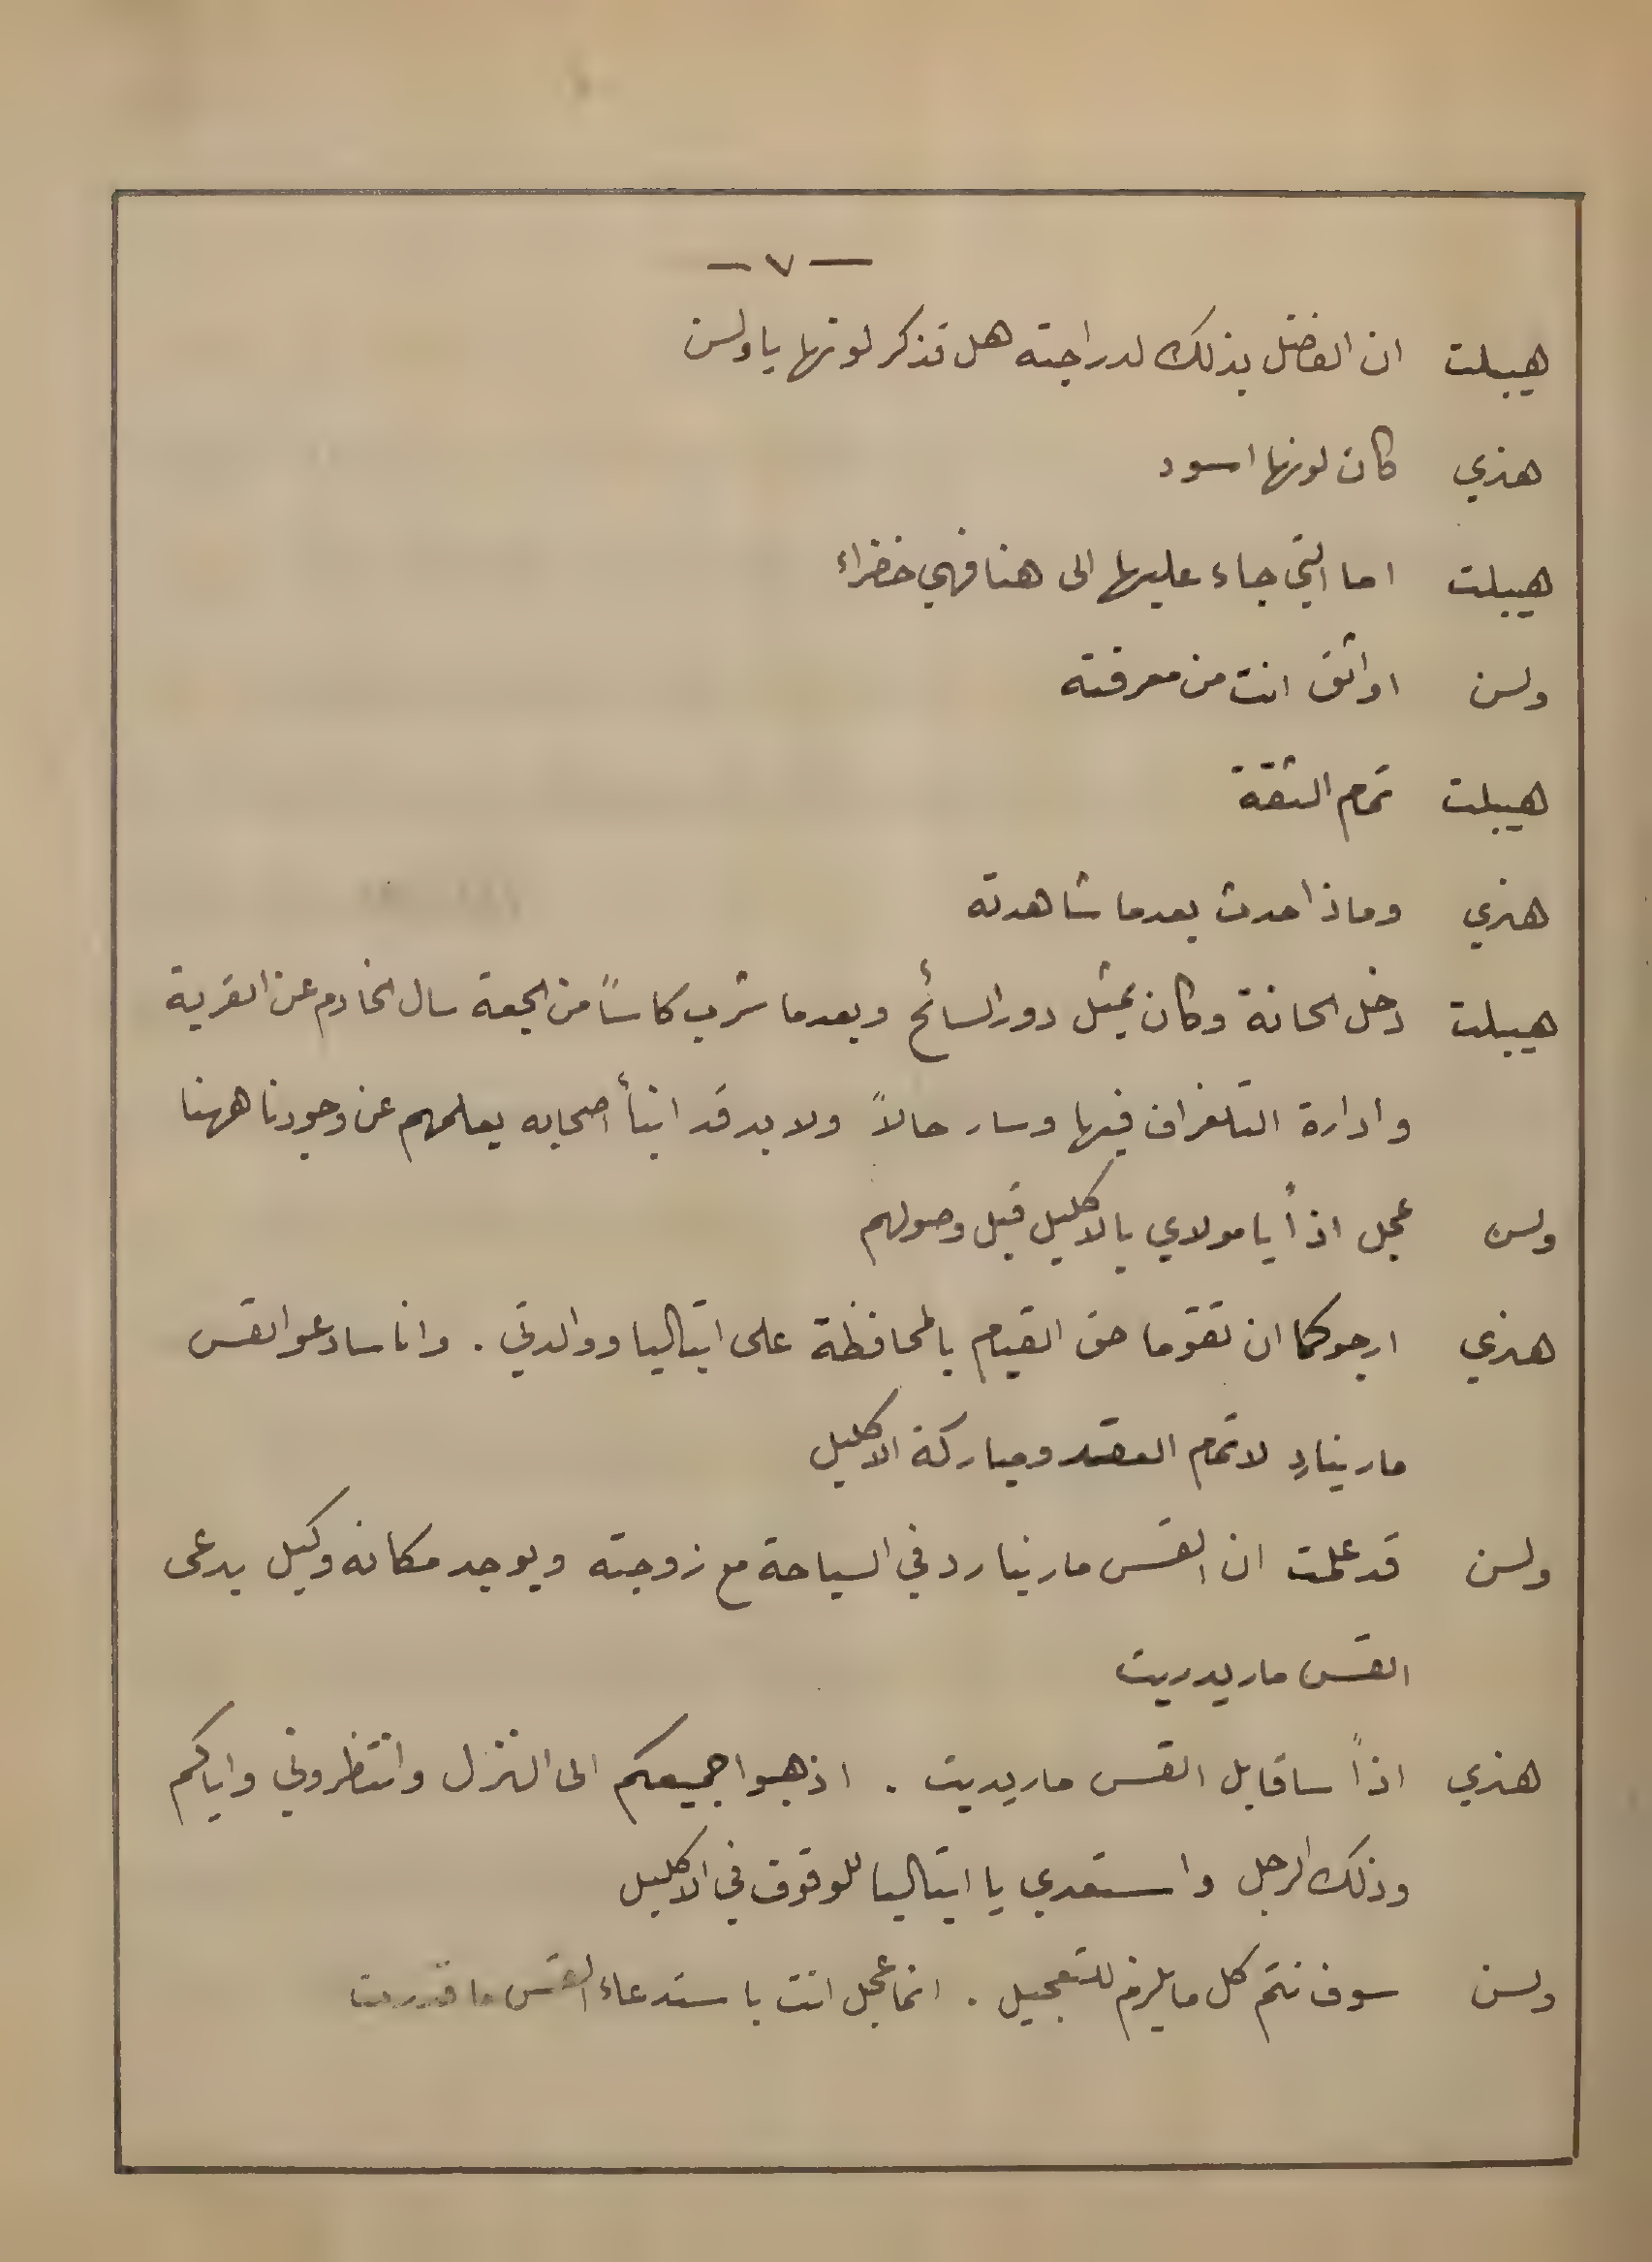 — ٧ —
هيبلت ان الفضل بذلك لدراجته هل تذكر لونها يا ولسن
هنري كان لونها اسود
هيبلت اما التي جاء عليها الى هنا فهي خضراء
ولسن اواثق انت من معرفته
هيبلت تمام الثقة
هنري وماذا حدث بعدما شاهدته
هيبلت دخل الحانة وكان يمثل دور السائح وبعدما شرب كاساً من الجعة سال الخادم عن القرية
وادارة التلغراف فيها وسار حالاً ولا بد قد انبأ اصحابه يعلمهم عن وجودنا ههنا
ولسن عجل اذاً يا مولاي بالاكليل قبل وصولهم
هنري ارجوكما ان تقوما حق القيام بالمحافظة على ايتاليا ووالدتي . وانا سادعو القس
مارينارد لاتمام العقد ومباركة الاكليل
ولسن قد علمت ان القس مارينارد في السياحة مع زوجته ويوجد مكانه وكيل يدعى
القس ماريدريت
هنري اذاً ساقابل القس ماريديت . اذهبوا جميعكم الى النزل وانتظروني واياكم
وذلك الرجل واستعدي يا ايتاليا للوقوف في الاكليل
ولسن سوف نتم كل ما يلزم للتعجيل . انما عجل انت باستدعاء القس ما قدرت